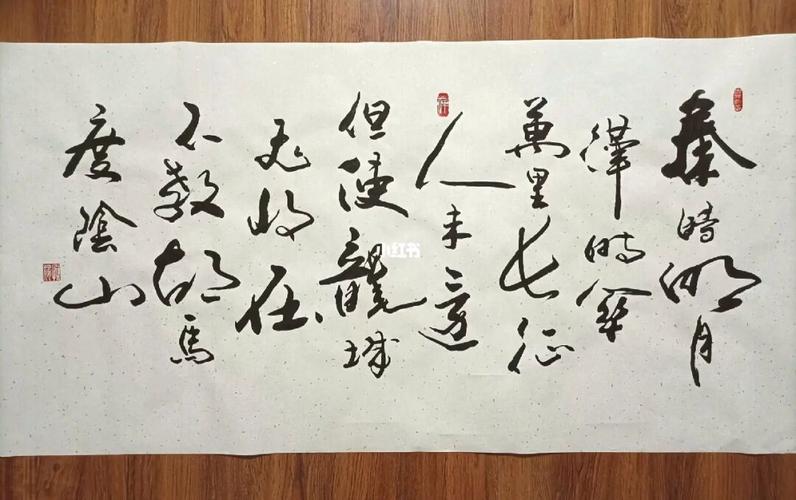 秦時明月
漢時關
萬里長征
人未還
但使龍城
飛將在
不教胡馬
度陰山
小红书